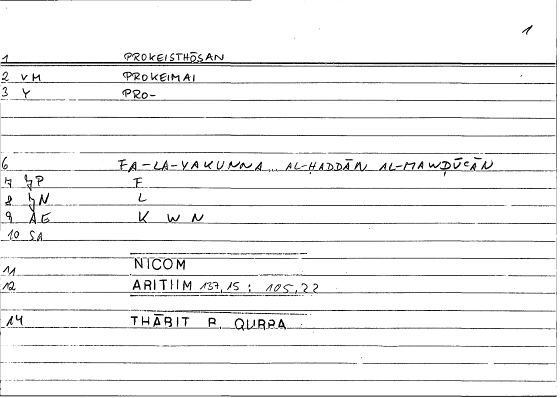 1
1 PROKEISTHŌSAN
2 VM PROKEIMAI
3 Y PRO-
6 FA-LA-YAKUNNA... AL-ḤADDĀN AL-MAWḌŪʿĀN
7 JP F
8 JN L
9 AE K W N
10 SA
11 NICOM
12 ARITIIM 137,15 : 105,22
14 THĀBIT B. QURRA